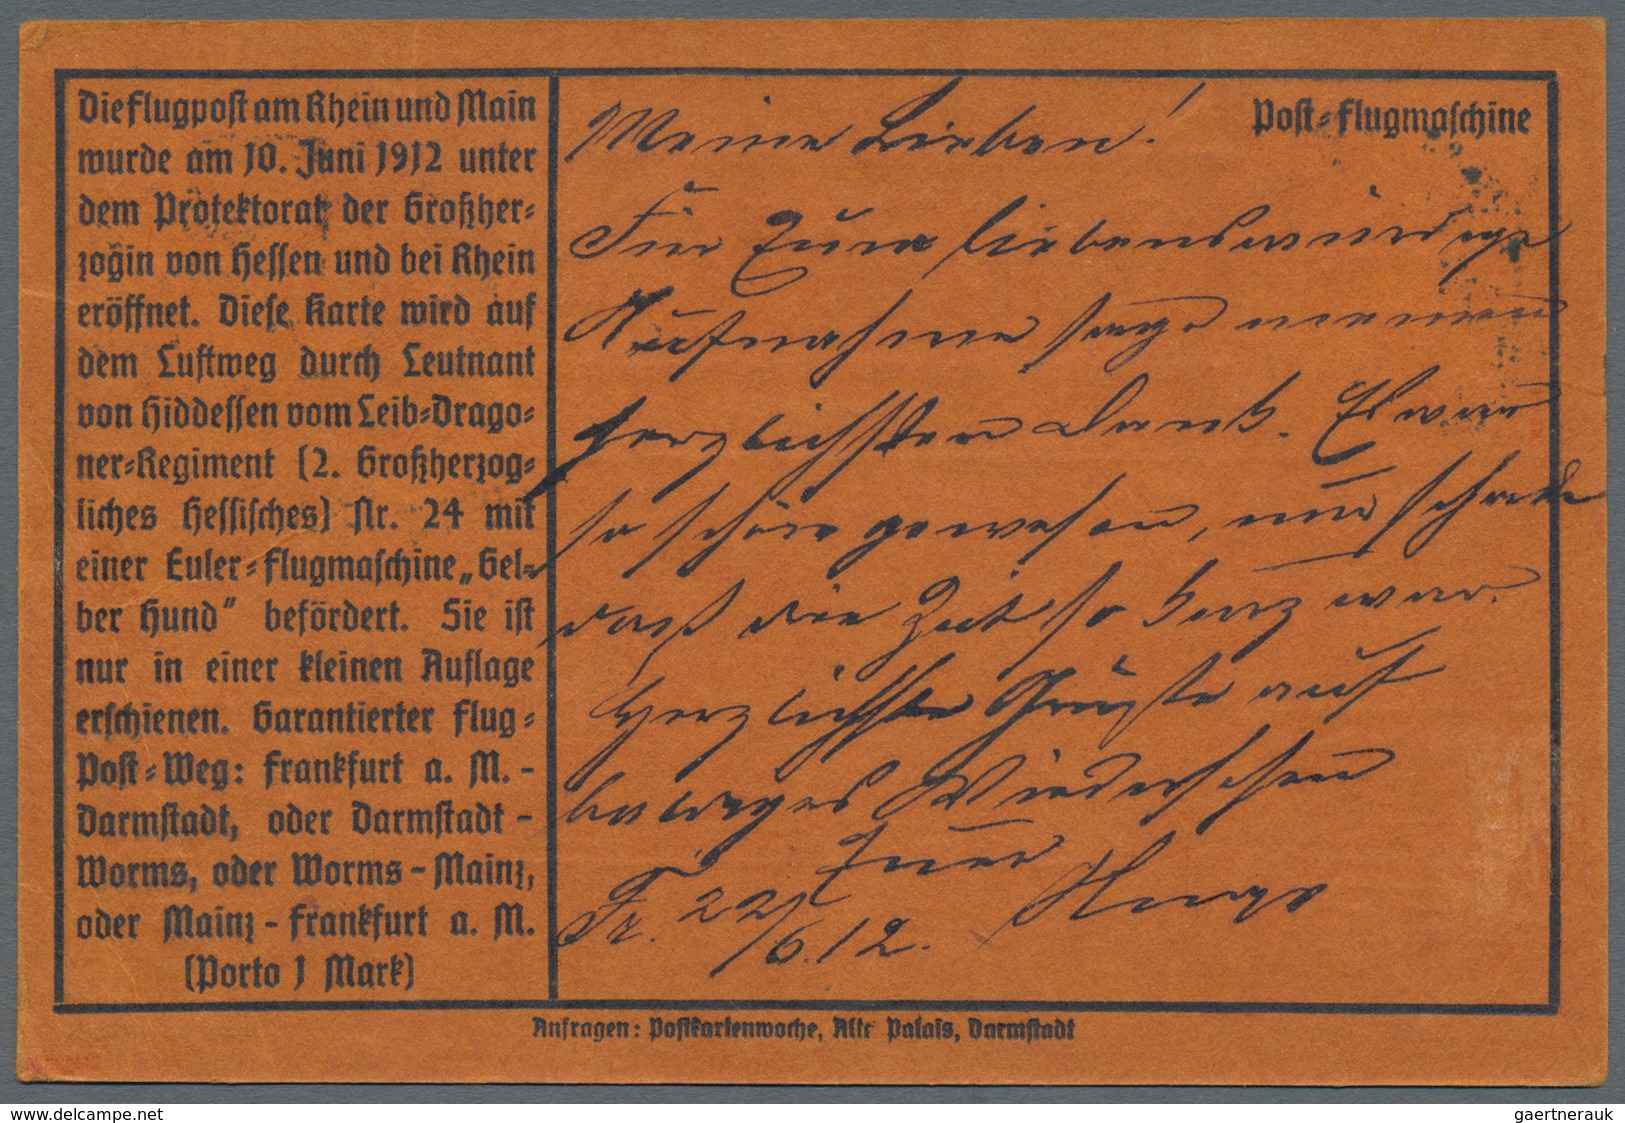 Die Flugpost am Rhein und Main
wurde am 10. Juni 1912 unter
dem Protektorat der Großher-
zogin von Hessen und bei Rhein
eröffnet. Diese Karte wird auf
dem Luftweg durch Leutnant
von Hiddessen vom Leib-Drago-
ner-Regiment (2. Großherzog-
liches Hessisches) Nr. 24 mit
einer Euler-Flugmaschine „Gel-
ber Hund“ befördert. Sie ist
nur in einer kleinen Auflage
erschienen. Garantierter Flug-
Post-Weg: Frankfurt a. M. -
Darmstadt, oder Darmstadt -
Worms, oder Worms - Mainz,
oder Mainz - Frankfurt a. M.
(Porto 1 Mark)
Post-Flugmaschine
Meine Lieben!
Für Eure liebenswürdige
Aufnahme sage meinen
herzlichsten Dank. Es war
so schön gewesen, nur schade
daß die Zeit so kurz war.
Herzlichste Grüße auf
baldiges Wiedersehen
Euer
Hugo
Fr. 22/6.12.
Anfragen: Postkartenwoche, Alte Palais, Darmstadt
www.delcampe.net
gaertnerauk